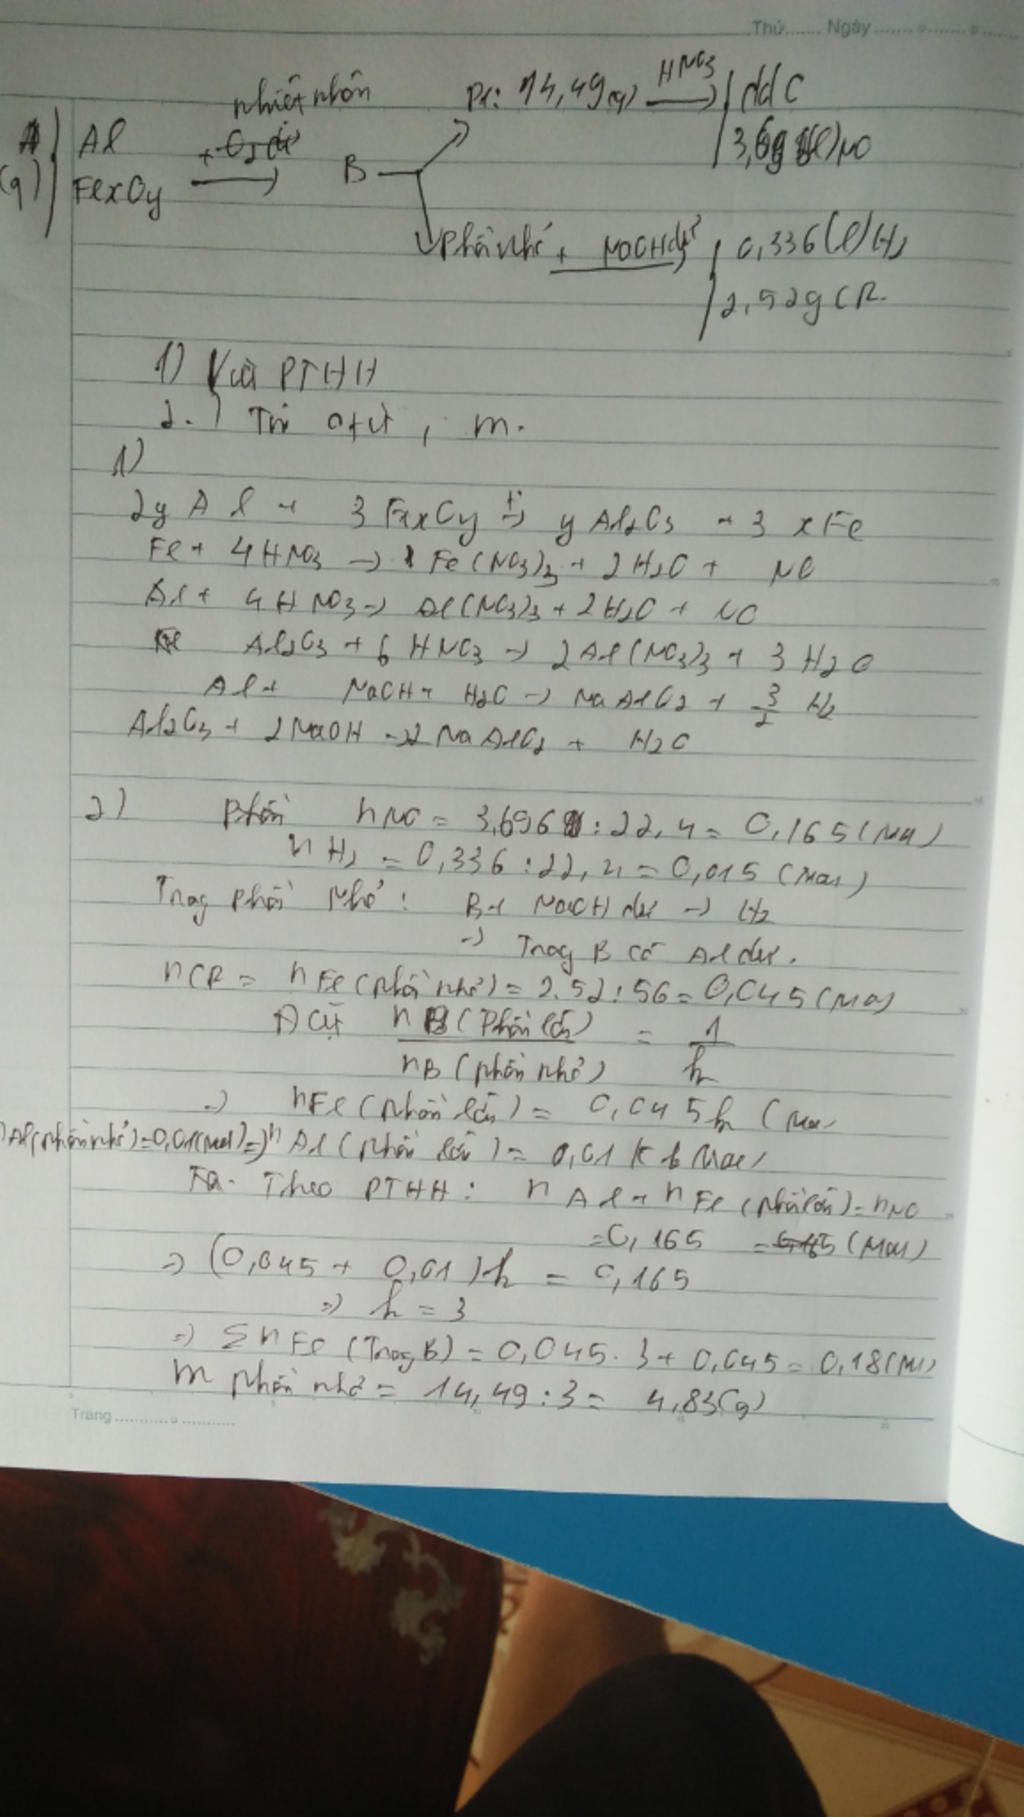 Thứ....... Ngày
nhiệt nhôm
P1: 14,49(g) HNO3 → ddC
3,696 (l) NO
Al
FexOy
B
Phần nhỏ + NaOH dư 0,336(l) H2
2,52g CR.
1) Viết PTHH
2.) Tìm CTCT, m.
1)
2y Al + 3 FexOy t°→ y Al2O3 + 3 xFe
Fe + 4HNO3 → Fe(NO3)3 + 2H2O + NO
Al + 4HNO3 → Al(NO3)3 + 2H2O + NO
Al2O3 + 6 HNO3 → 2Al(NO3)3 + 3 H2O
Al + NaOH + H2O → NaAlO2 + 3/2 H2
Al2O3 + 2NaOH → 2 NaAlO2 + H2O
2) Phần nNO = 3,696 : 22,4 = 0,165 (Mol)
nH2 = 0,336 : 22,4 = 0,015 (Mol)
Trong phần nhỏ : B + NaOH dư → H2
→ Trong B có Al dư.
nCR = nFe (phần nhỏ) = 2.52 : 56 = 0,045 (Mol)
Đặt nB (Phần lớn) / nB (phần nhỏ) = 1/k
=) nFe (phần lớn) = 0,045k (Mol
nAl (phần nhỏ) = 0,01 (Mol) =) n Al (phần lớn) = 0,01 k Mol
Ta. Theo PTHH : n Al + n Fe (phần lớn) = nNO
= 0,165 (Mol)
=) (0,045 + 0,01) k = 0,165
=) k = 3
=) Σ n Fe (Trong B) = 0,045 . 3 + 0,045 = 0,18 (Mol)
m phần nhỏ = 14,49 : 3 = 4,83(g)
Trang